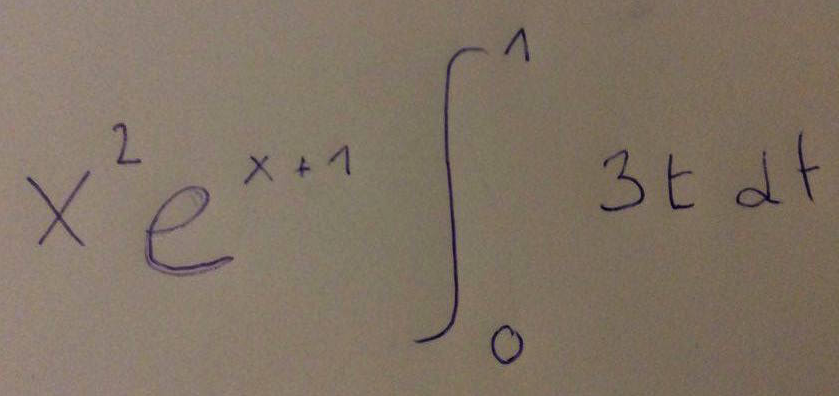 x² e^{x+1} ∫₀¹ 3t dt